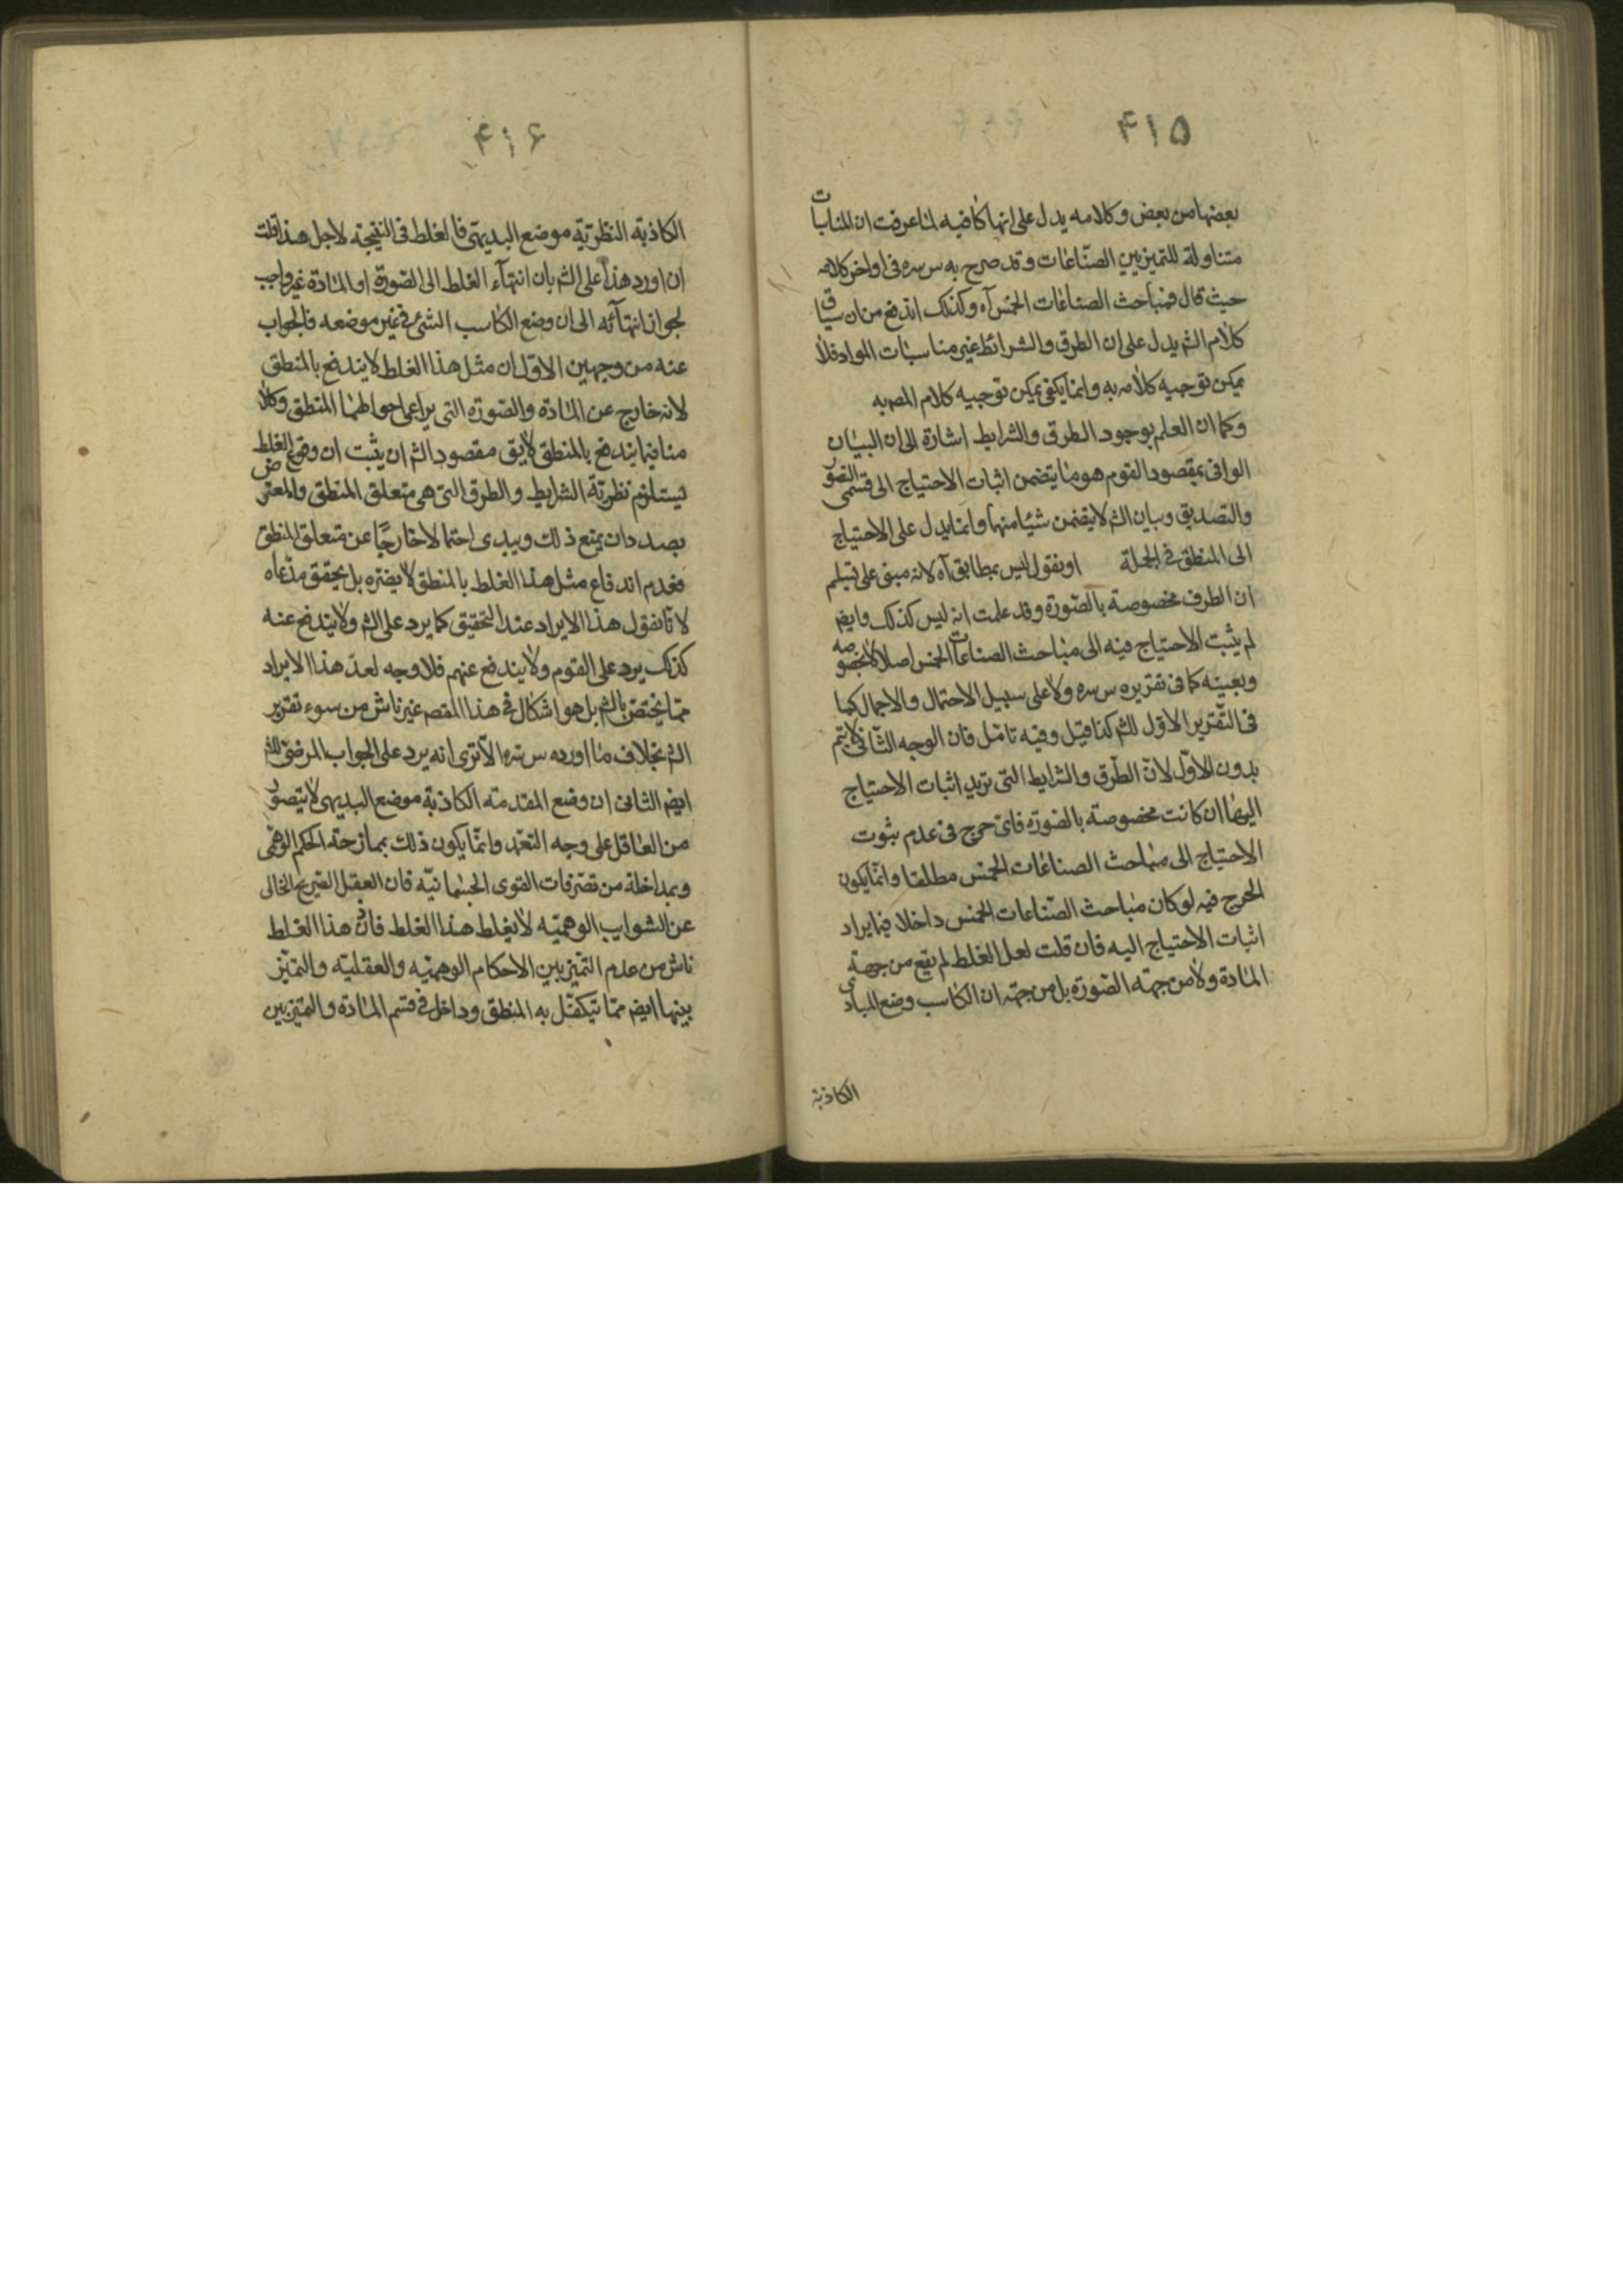 ۴۱۵
بعضها من بعض وكلامه يدل على انها كافيه لما عرفت ان المناسبات
متناولة للتميز بين الصناعات وقد صرح به س سره فى اواخر كلامه
حيث قال فمباحث الصناعات الخمس آه وكذلك اندفع من ان سياق
كلام الشم يدل على ان الطرق والشرائط غير مناسبات المواد فلا
يمكن توجيه كلامه به وانما يكفى يمكن توجيه كلام المص به
وكما ان العلم بوجود الطرق والشرايط اشارة الى ان البيان
الوافى بمقصود القوم هو ما يتضمن اثبات الاحتياج الى قسمى التصور
والتصديق وبيان الشم لا يتضمن شيئا منها وانما يدل على الاحتياج
الى المنطق فى الجملة او نقول ليس بمطابق آه لانه مبنى على تسليم
ان الطرف مخصوصة بالصورة وقد علمت انه ليس كذلك وايضم
لم يثبت الاحتياج فيه الى مباحث الصناعات الخمس اصلا لا بخصوصه
وبعينه كما فى تقريره س سره ولا على سبيل الاحتمال والاجمال كما
فى التقرير الاول للشم كذا قيل وفيه تامل فان الوجه الثانى لا يتم
بدون الاول لان الطرق والشرايط التى تريد اثبات الاحتياج
اليها ان كانت مخصوصة بالصورة فاى حرج فى عدم ثبوت
الاحتياج الى مباحث الصناعات الخمس مطلقا وانما يكون
الحرج فيه لو كان مباحث الصناعات الخمس داخلا فيما يراد
اثبات الاحتياج اليه فان قلت لعل الغلط لم يقع من جهة
المادة ولا من جهة الصورة بل من جهة ان الكاسب وضع المبادى
الكاذبة
۴۱۶
الكاذبة النظرية موضع البديهى فالغلط فى النتيجة لاجل هذا قلت
ان اورد هذا على الشم بان انتهاء الغلط الى الصورة او المادة غير واجب
لجواز انتهائه الى ان وضع الكاسب الشئ فى غير موضعه فالجواب
عنه من وجهين الاول ان مثل هذا الغلط لا يندفع بالمنطق
لانه خارج عن المادة والصورة التى يراعى احوالهما المنطق وكلا
منا فيما يندفع بالمنطق لا يق مقصود الشم ان يثبت ان وقوع الغلط
يستلزم نظرية الشرايط والطرق التى هى متعلق المنطق والمعترض
بصدد ان يمنع ذلك ويبدى احتمالا خارجا عن متعلق المنطق
فعدم اندفاع مثل هذا الغلط بالمنطق لا يضره بل يحقق مدعاه
لانا نقول هذا الايراد عند التحقيق كما يرد على الشم ولا يندفع عنه
كذلك يرد على القوم ولا يندفع عنهم فلا وجه لعد هذا الايراد
مما يختص بالشم بل هو اشكال فى هذا المقصم غير ناش من سوء تقرير
الشم بخلاف ما اورده س سره الا ترى انه يرد على الجواب المرضى للشم
ايضم الثانى ان وضع المقدمته الكاذبة موضع البديهى لا يتصور
من العاقل على وجه التعمد وانما يكون ذلك بممازحة الحكم الوهمى
وبمداخلة من تصرفات القوى الجسمانيه فان العقل الصريح الخالى
عن الشوايب الوهميه لا يغلط هذا الغلط فاذن هذا الغلط
ناش من عدم التميز بين الاحكام الوهميه والعقليه والتميز
بينها ايضم مما يتكفل به المنطق وداخل فى قسم المادة والتميز بين